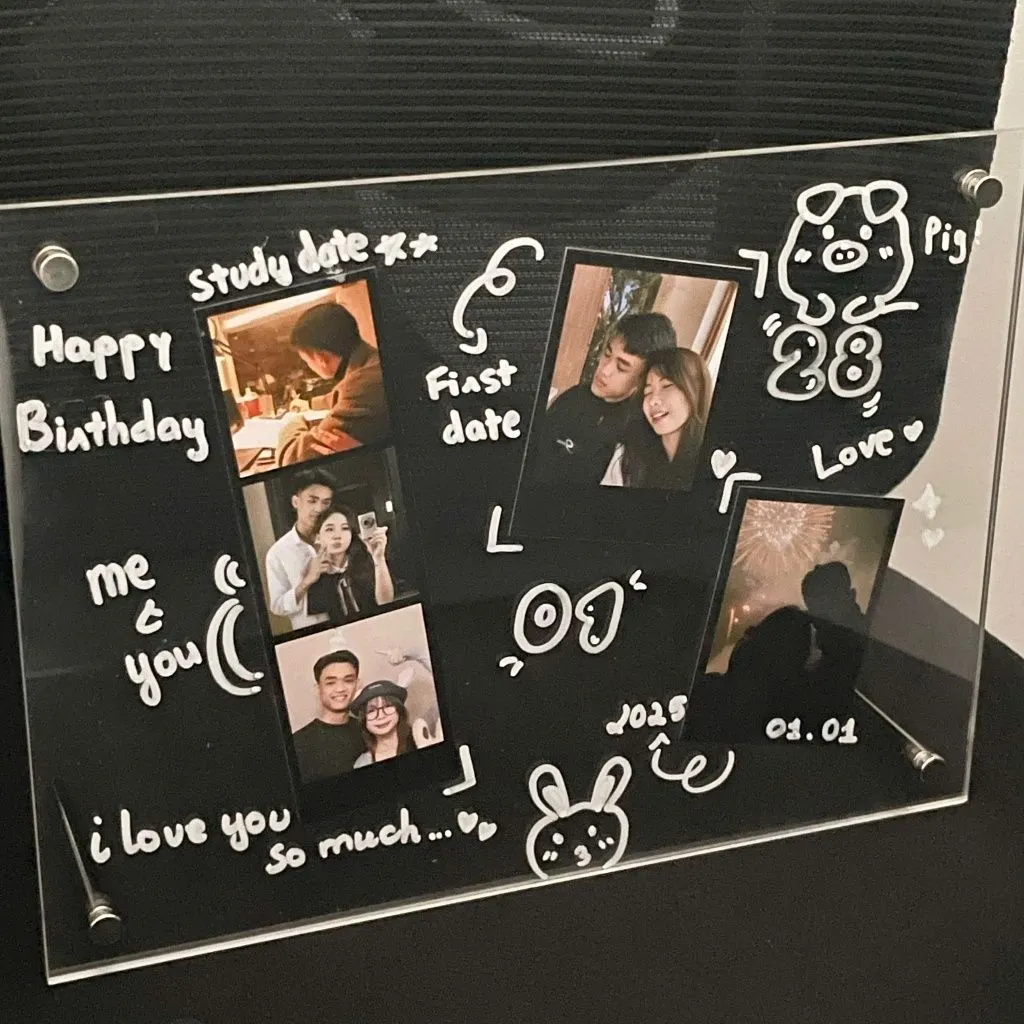 study date
Happy
Birthday
First
date
Pig
28
Love
me
you
07
2025
01.01
i love you
so much...